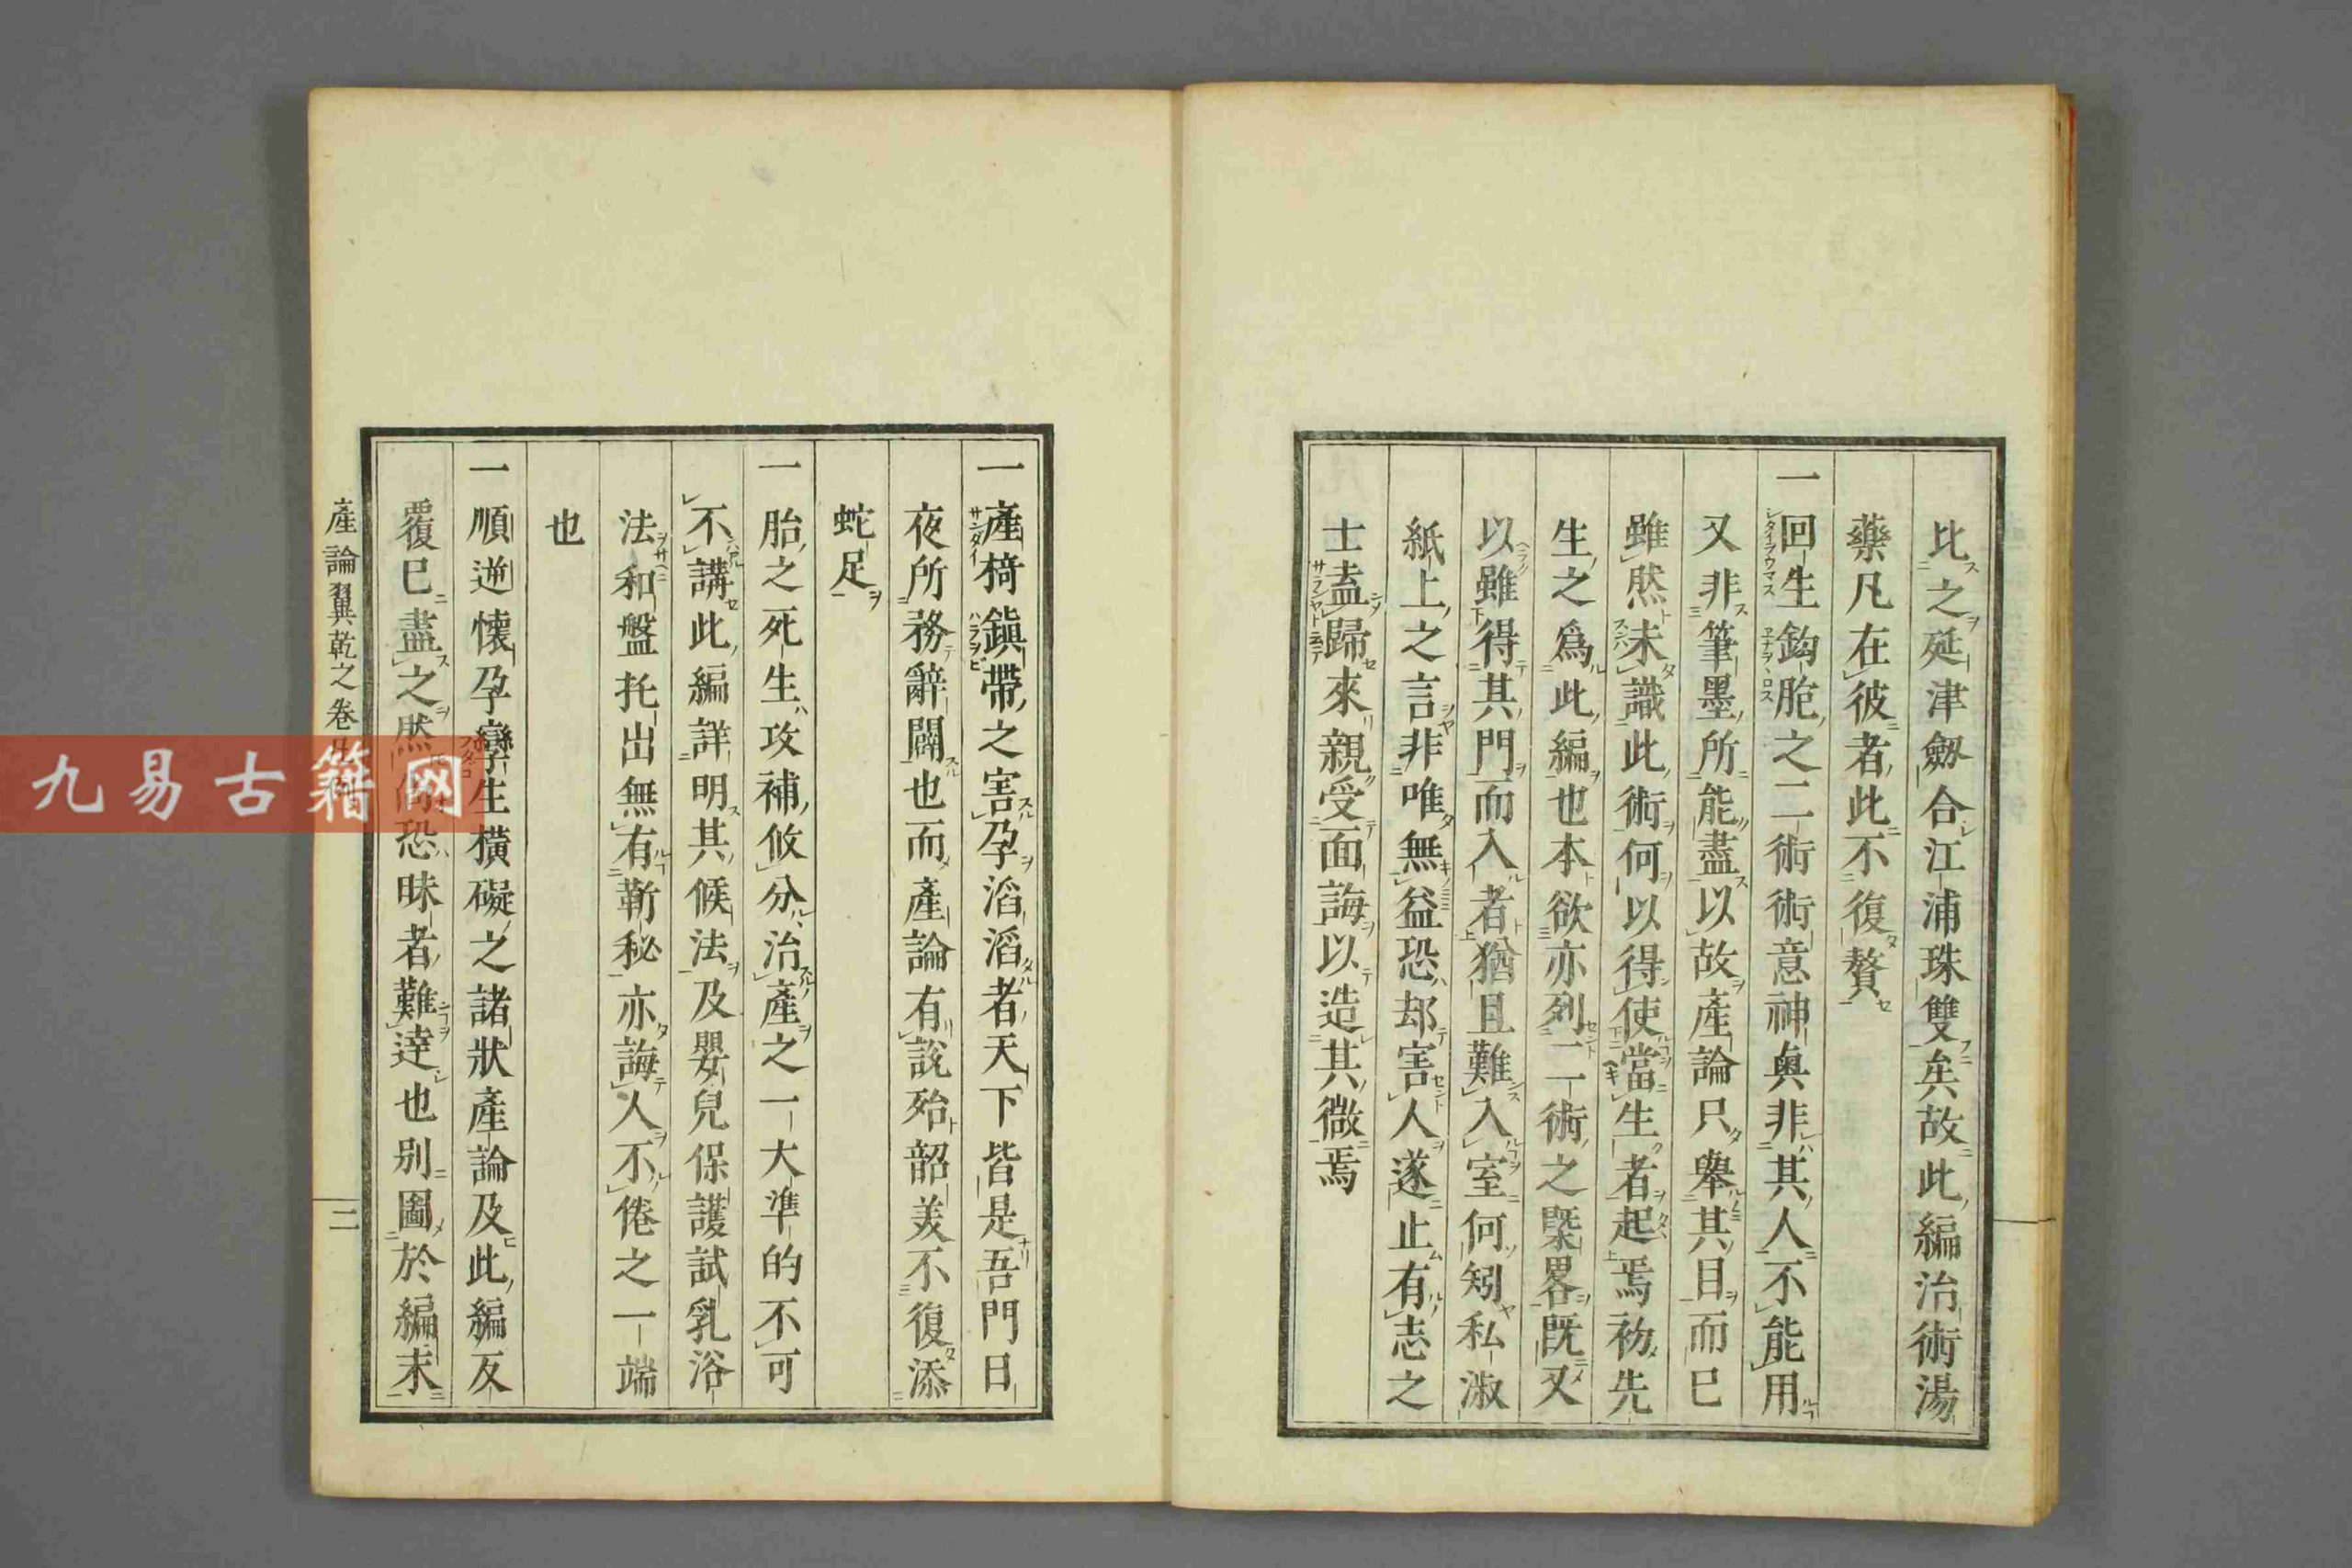 比之延津劔合江浦珠雙矣故此編治術湯
藥凡在彼者此不復贅
一回生鈎胞之二術術意神奥非其人不能用
又非筆墨所能盡以故產論只舉其目而已
雖然未識此術何以得使當生者起焉初先
生之為此編也本欲亦列二術之槩畧既又
以雖得其門而入者猶且難入室何矧私淑
紙上之言非唯無益恐却害人遂止有志之
士盍歸來親受面誨以造其微焉
一產椅鎭帶之害孕滔滔者天下皆是吾門日
夜所務辭闢也而產論有說殆韶美不復添
蛇足
一胎之死生攻補攸分治產之一大準的不可
不講此編詳明其候法及嬰兒保護試乳浴
法和盤托出無有靳秘亦誨人不倦之一端
也
一順逆懷孕孿生橫礙之諸狀產論及此編反
覆已盡之然尚恐昧者難達也別圖於編末
產論翼乾之卷
二
九易古籍网